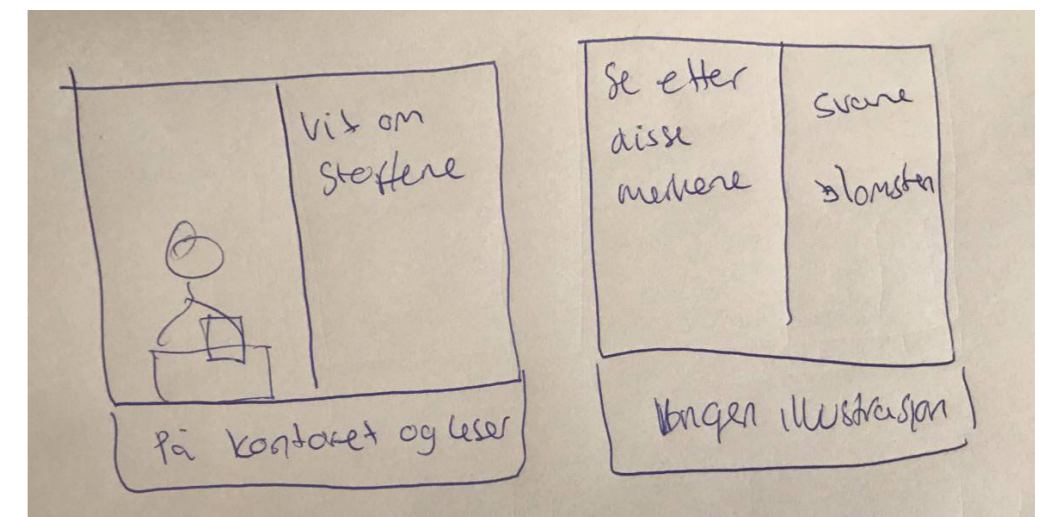 Vit om
stoffene
På kontoret og leser
Se etter
disse
merkene
Svane
Blomsten
Ingen illustrasjon